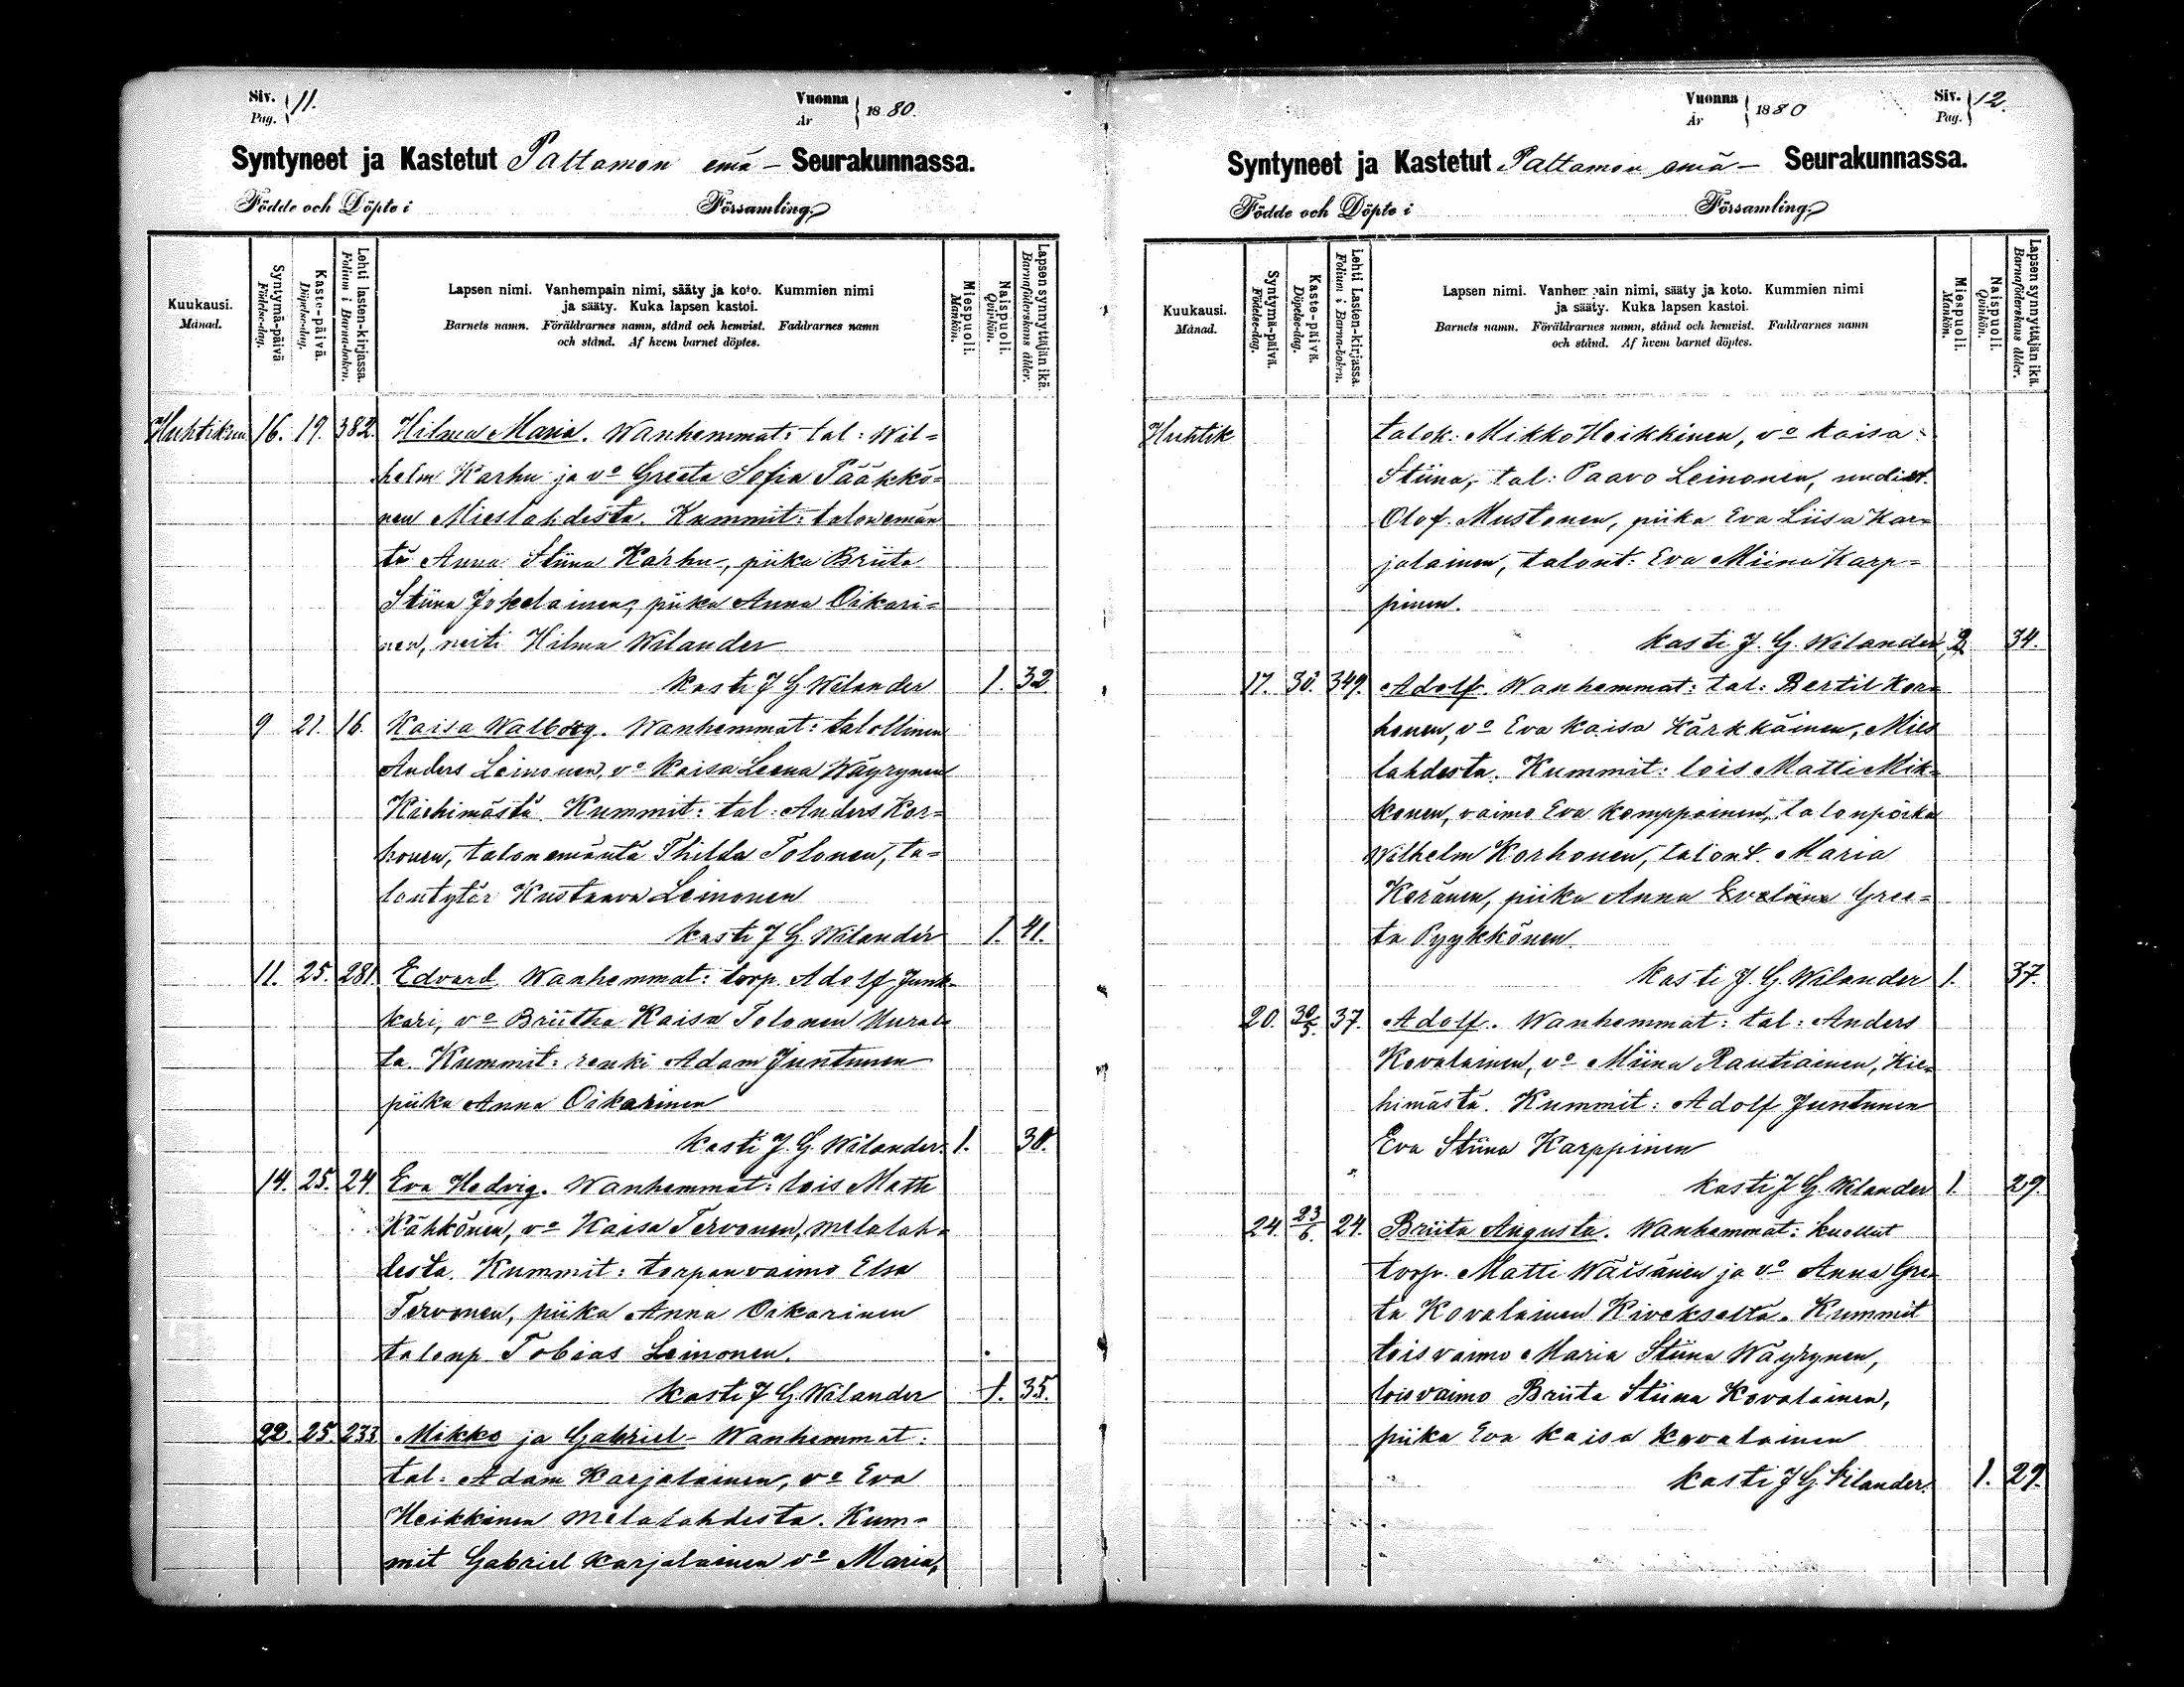 Siv. 11.
Pag.
Vuonna 1880.
År
Syntyneet ja Kastetut Paltamon emä- Seurakunnassa.
Födde och Döpte i Församling.
Kuukausi.
Månad.
Syntymä-päivä
Födelse-dag.
Kaste-päivä.
Döpelse-dag.
Lehti lasten-kirjassa.
Folium i Barna-boken.
Lapsen nimi. Vanhempain nimi, sääty ja koto. Kummien nimi
ja sääty. Kuka lapsen kastoi.
Barnets namn. Föräldrarnes namn, stånd och hemvist. Faddrarnes namn
och stånd. Af hvem barnet döptes.
Miespuoli.
Mankön.
Naispuoli.
Qvinkön.
Lapsen synnyttäjän ikä.
Barnaföderskans ålder.
Huhtikuu 16. 19. 382. Hilma Maria. Wanhemmat: tal: Wil=
helm Karhu ja vo Greeta Sofia Pääkkö=
nen Mieslahdesta. Kummit: talonemän
tä Anna Stiina Karhu, piika Briita
Stiina Jokelainen, piika Anna Oikari=
nen, neiti Hilma Wilander
kasti J G Wilander 1. 32
9 21. 16. Kaisa Walborg. Wanhemmat: talollinen
Anders Leinonen, vo Kaisa Leena Wäyrynen
Kiehimästä. Kummit: tal: Anders Kor=
honen, talonemäntä Thilda Tolonen, ta=
lontytär Kustaava Leinonen
kasti J G. Wilander 1. 41.
11. 25. 281 Edvard Wanhemmat: torp. Adolf Junk=
kari, vo Briitha Kaisa Tolonen
ta. Kummit: renki Adam Juntunen
piika Anna Oikarinen
kasti J. G. Wilander. 1. 30.
14. 25. 24. Eva Hedvig. Wanhemmat: lois Matti
Kähkönen, vo Kaisa Tervonen, Melalah=
desta. Kummit: torpanvaimo Elsa
Tervonen, piika Anna Oikarinen
talonp Tobias Leinonen.
kasti J G. Wilander 1. 35.
22. 25. 233 Mikko ja Gabriel - Wanhemmat:
tal: Adam Karjalainen, vo Eva
Heikkinen Melalahdesta. Kum=
mit Gabriel Karjalainen vo Maria,
Vuonna 1880
År
Siv. 12.
Pag.
Syntyneet ja Kastetut Paltamon emä- Seurakunnassa.
Födde och Döpte i Församling.
Kuukausi.
Månad.
Syntymä-päivä.
Födelse-dag.
Kaste-päivä.
Döpelse-dag.
Lehti Lasten-kirjassa.
Folium i Barna-boken.
Lapsen nimi. Vanhempain nimi, sääty ja koto. Kummien nimi
ja sääty. Kuka lapsen kastoi.
Barnets namn. Föräldrarnes namn, stånd och hemvist. Faddrarnes namn
och stånd. Af hvem barnet döptes.
Miespuoli.
Mankön.
Naispuoli.
Qvinkön.
Lapsen synnyttäjän ikä.
Barnaföderskans ålder.
Huhtik talok: Mikko Heikkinen, vo Kaisa
Stiina, tal: Paavo Leinonen, uudist.
Olof Mustonen, piika Eva Liisa Kar=
jalainen, talont: Eva Miina Karp=
pinen.
kasti J. G. Wilander 2 34.
17. 30. 349. Adolf. Wanhemmat: tal: Bertil Kor=
honen, vo Eva Kaisa Kärkkäinen, Mies
lahdesta. Kummit: lois Matti Mik=
konen, vaimo Eva Komppainen, talonpoika
Wilhelm Korhonen, talont. Maria
Keränen, piika Anna Eveliina Gree=
ta Pyykkönen.
kasti J. G. Wilander 1. 37.
20. 30/5. 37. Adolf. Wanhemmat: tal: Anders
Kovalainen, vo Miina Rautiainen, Kie=
himästä. Kummit: Adolf Juntunen
Eva Stiina Karppinen
kasti J G. Wilander 1. 29.
24. 23/6. 24. Briita Augusta. Wanhemmat: kuollut
torp. Matti Wäisänen ja vo Anna Gre=
ta Kovalainen Kivekseltä. Kummit
loisvaimo Maria Stiina Wäyrynen,
loisvaimo Briita Stiina Kovalainen,
piika Eva Kaisa Kovalainen
kasti J G. Wilander. 1. 29.